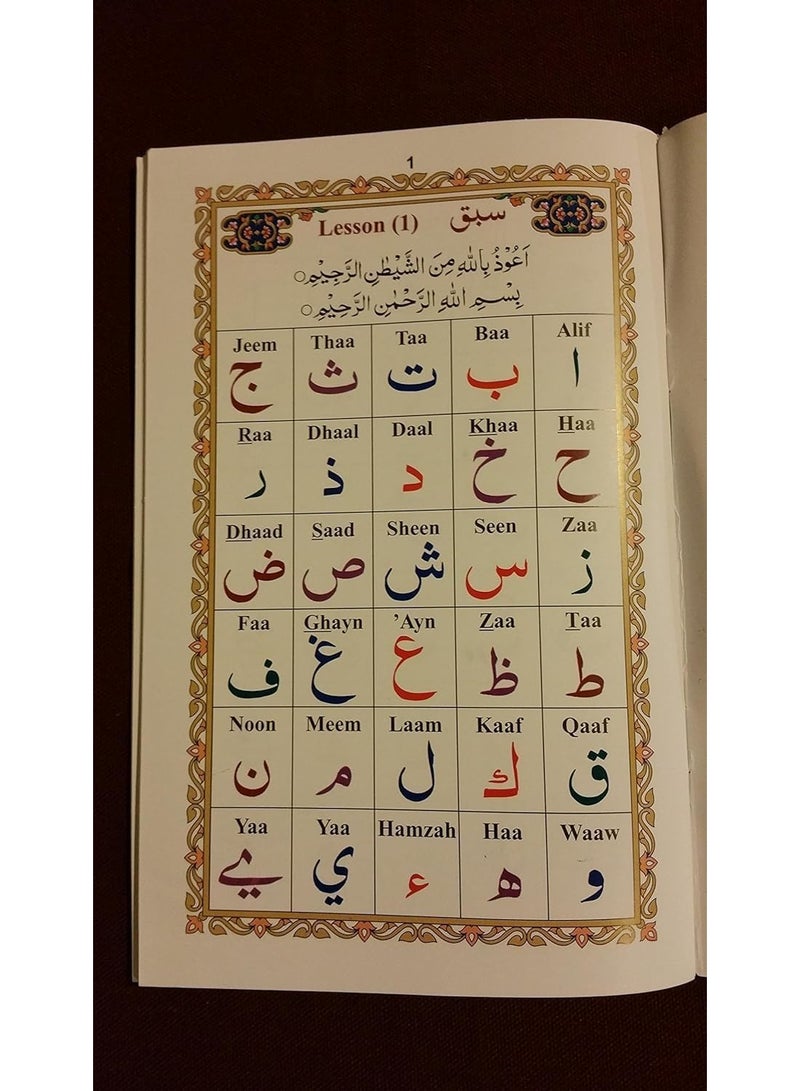 1
Lesson (1) سبق
اَعُوْذُ بِاللّٰهِ مِنَ الشَّيْطٰنِ الرَّجِيْمِ○
بِسْمِ اللّٰهِ الرَّحْمٰنِ الرَّحِيْمِ○
Alif Baa Taa Thaa Jeem
ا ب ت ث ج
Haa Khaa Daal Dhaal Raa
ح خ د ذ ر
Zaa Seen Sheen Saad Dhaad
ز س ش ص ض
Taa Zaa ’Ayn Ghayn Faa
ط ظ ع غ ف
Qaaf Kaaf Laam Meem Noon
ق ك ل م ن
Waaw Haa Hamzah Yaa Yaa
و ه ء ي ے